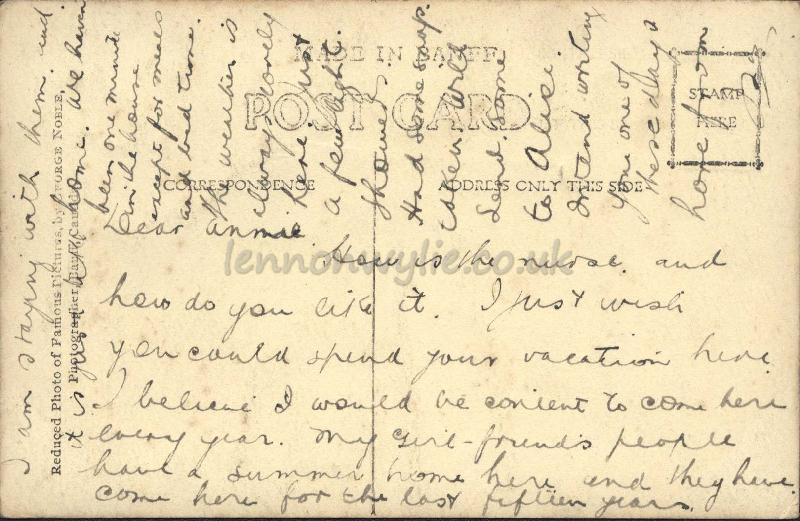 MADE IN BANFF
POST CARD
STAMP
HERE
CORRESPONDENCE
ADDRESS ONLY THIS SIDE
Reduced Photo of Famous Pictures, by GEORGE NOBLE,
Photographer, Banff, Canada
lennonwylie.co.uk
Dear Annie
How is the nurse and
how do you like it. I just wish
you could spend your vacation here
I believe I would be content to come here
every year. My girl-friends people
have a summer home here and they have
come here for the last fifteen years.
I am staying with them and
it is just like home. We haven
been one minute
in the house
except for meals
and bed time.
The weather is
always lovely
here. just
a few light
showers.
Had some snap.
taken will
send some
to Alice.
Intend writing
you one of
these days